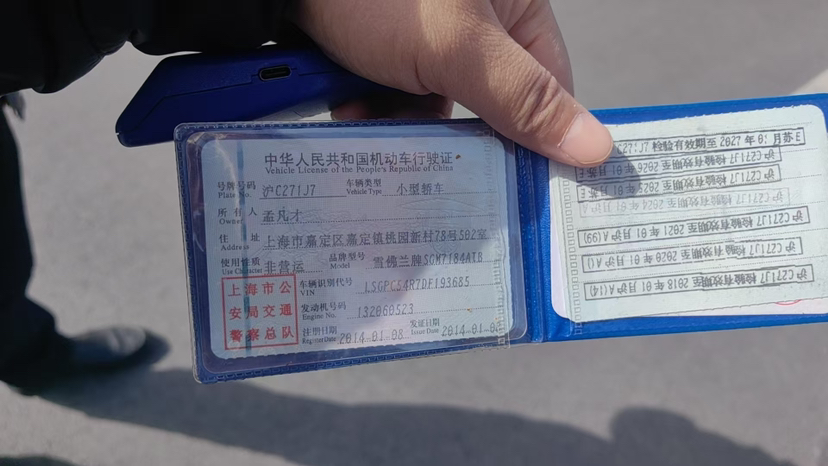 中华人民共和国机动车行驶证
Vehicle License of the People's Republic of China
号牌号码 沪C271J7 车辆类型 小型轿车
Plate No. Vehicle Type
所有人 孟凡才
Owner
住址 上海市嘉定区嘉定镇桃园新村78号502室
Address
使用性质 非营运 品牌型号 雪佛兰牌SGM7184ATB
Use Character Model
上海市公
安局交通
警察总队
车辆识别代号 LSGPC54R7DF193685
VIN
发动机号码 132060523
Engine No.
注册日期 2014-01-08 发证日期 2014-01-08
Register Date Issue Date
C271J7 检验有效期至 2027年01月苏E
沪C271J7 检验有效期至 2026年01月
沪C271J7 检验有效期至 2025年01月
沪C271J7 检验有效期至 2021年01月沪A(99)
沪C271J7 检验有效期至 2020年01月沪A
沪C271J7 检验有效期至 2018年01月沪A(14)